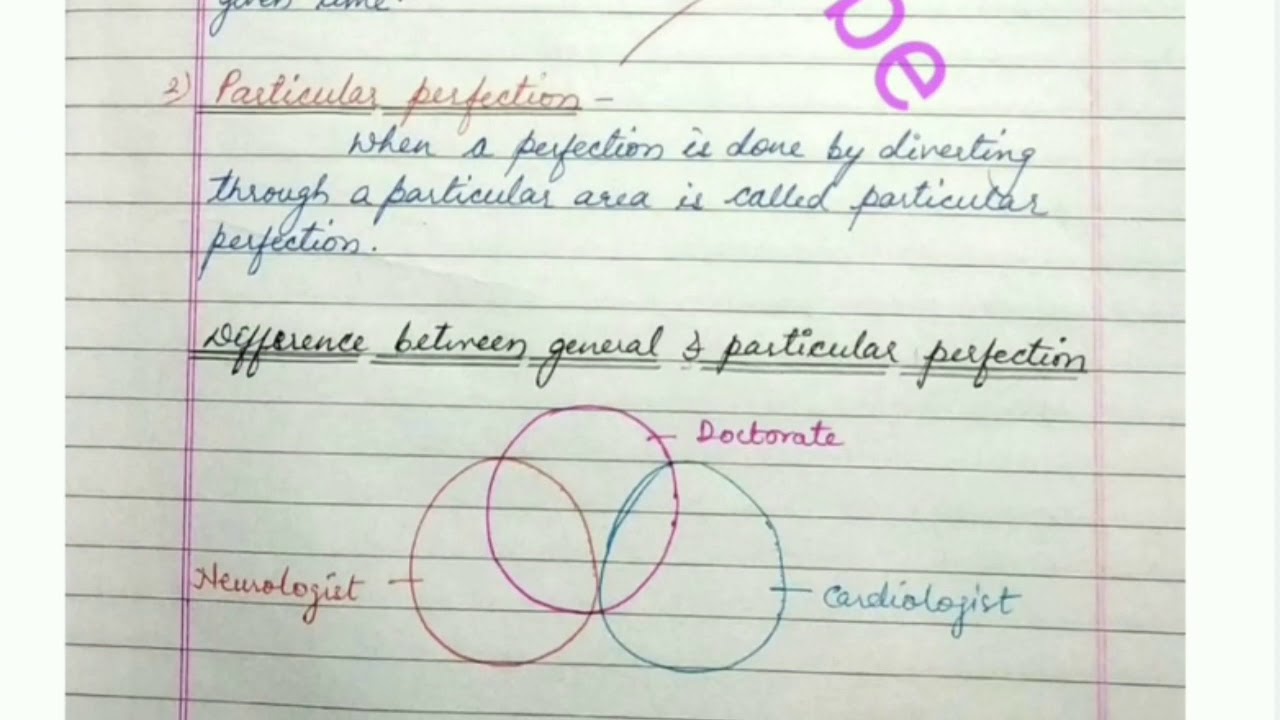 given time.
be
2) Particular perfection -
When a perfection is done by diverting
through a particular area is called particular
perfection.
Difference between general & particular perfection
Doctorate
Neurologist
Cardiologist